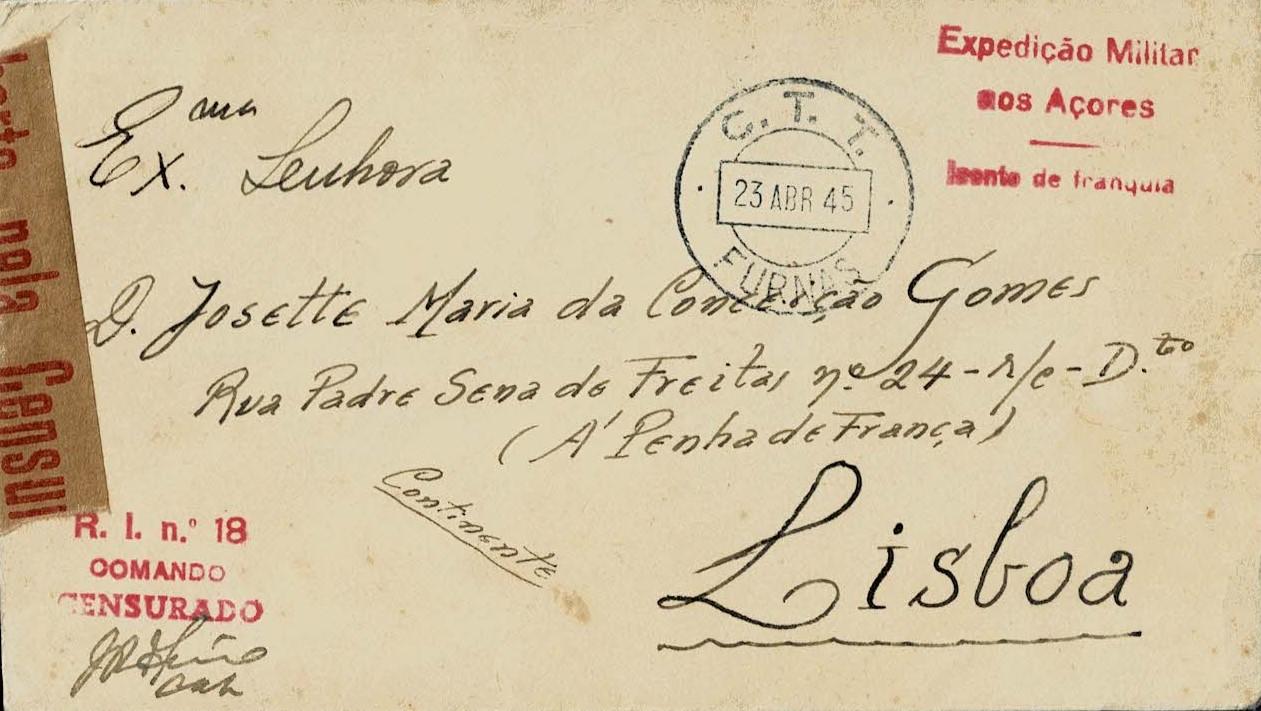 Expedição Militar
aos Açores
Isento de franquia
C. T. T.
23 ABR 45
FURNAS
Ex.ma Senhora
D. Josette Maria da Conceição Gomes
Rua Padre Sena de Freitas nº 24-r/c-D.to
(À Penha de França)
Continente
Lisboa
R. I. n.º 18
COMANDO
CENSURADO
pela Censur